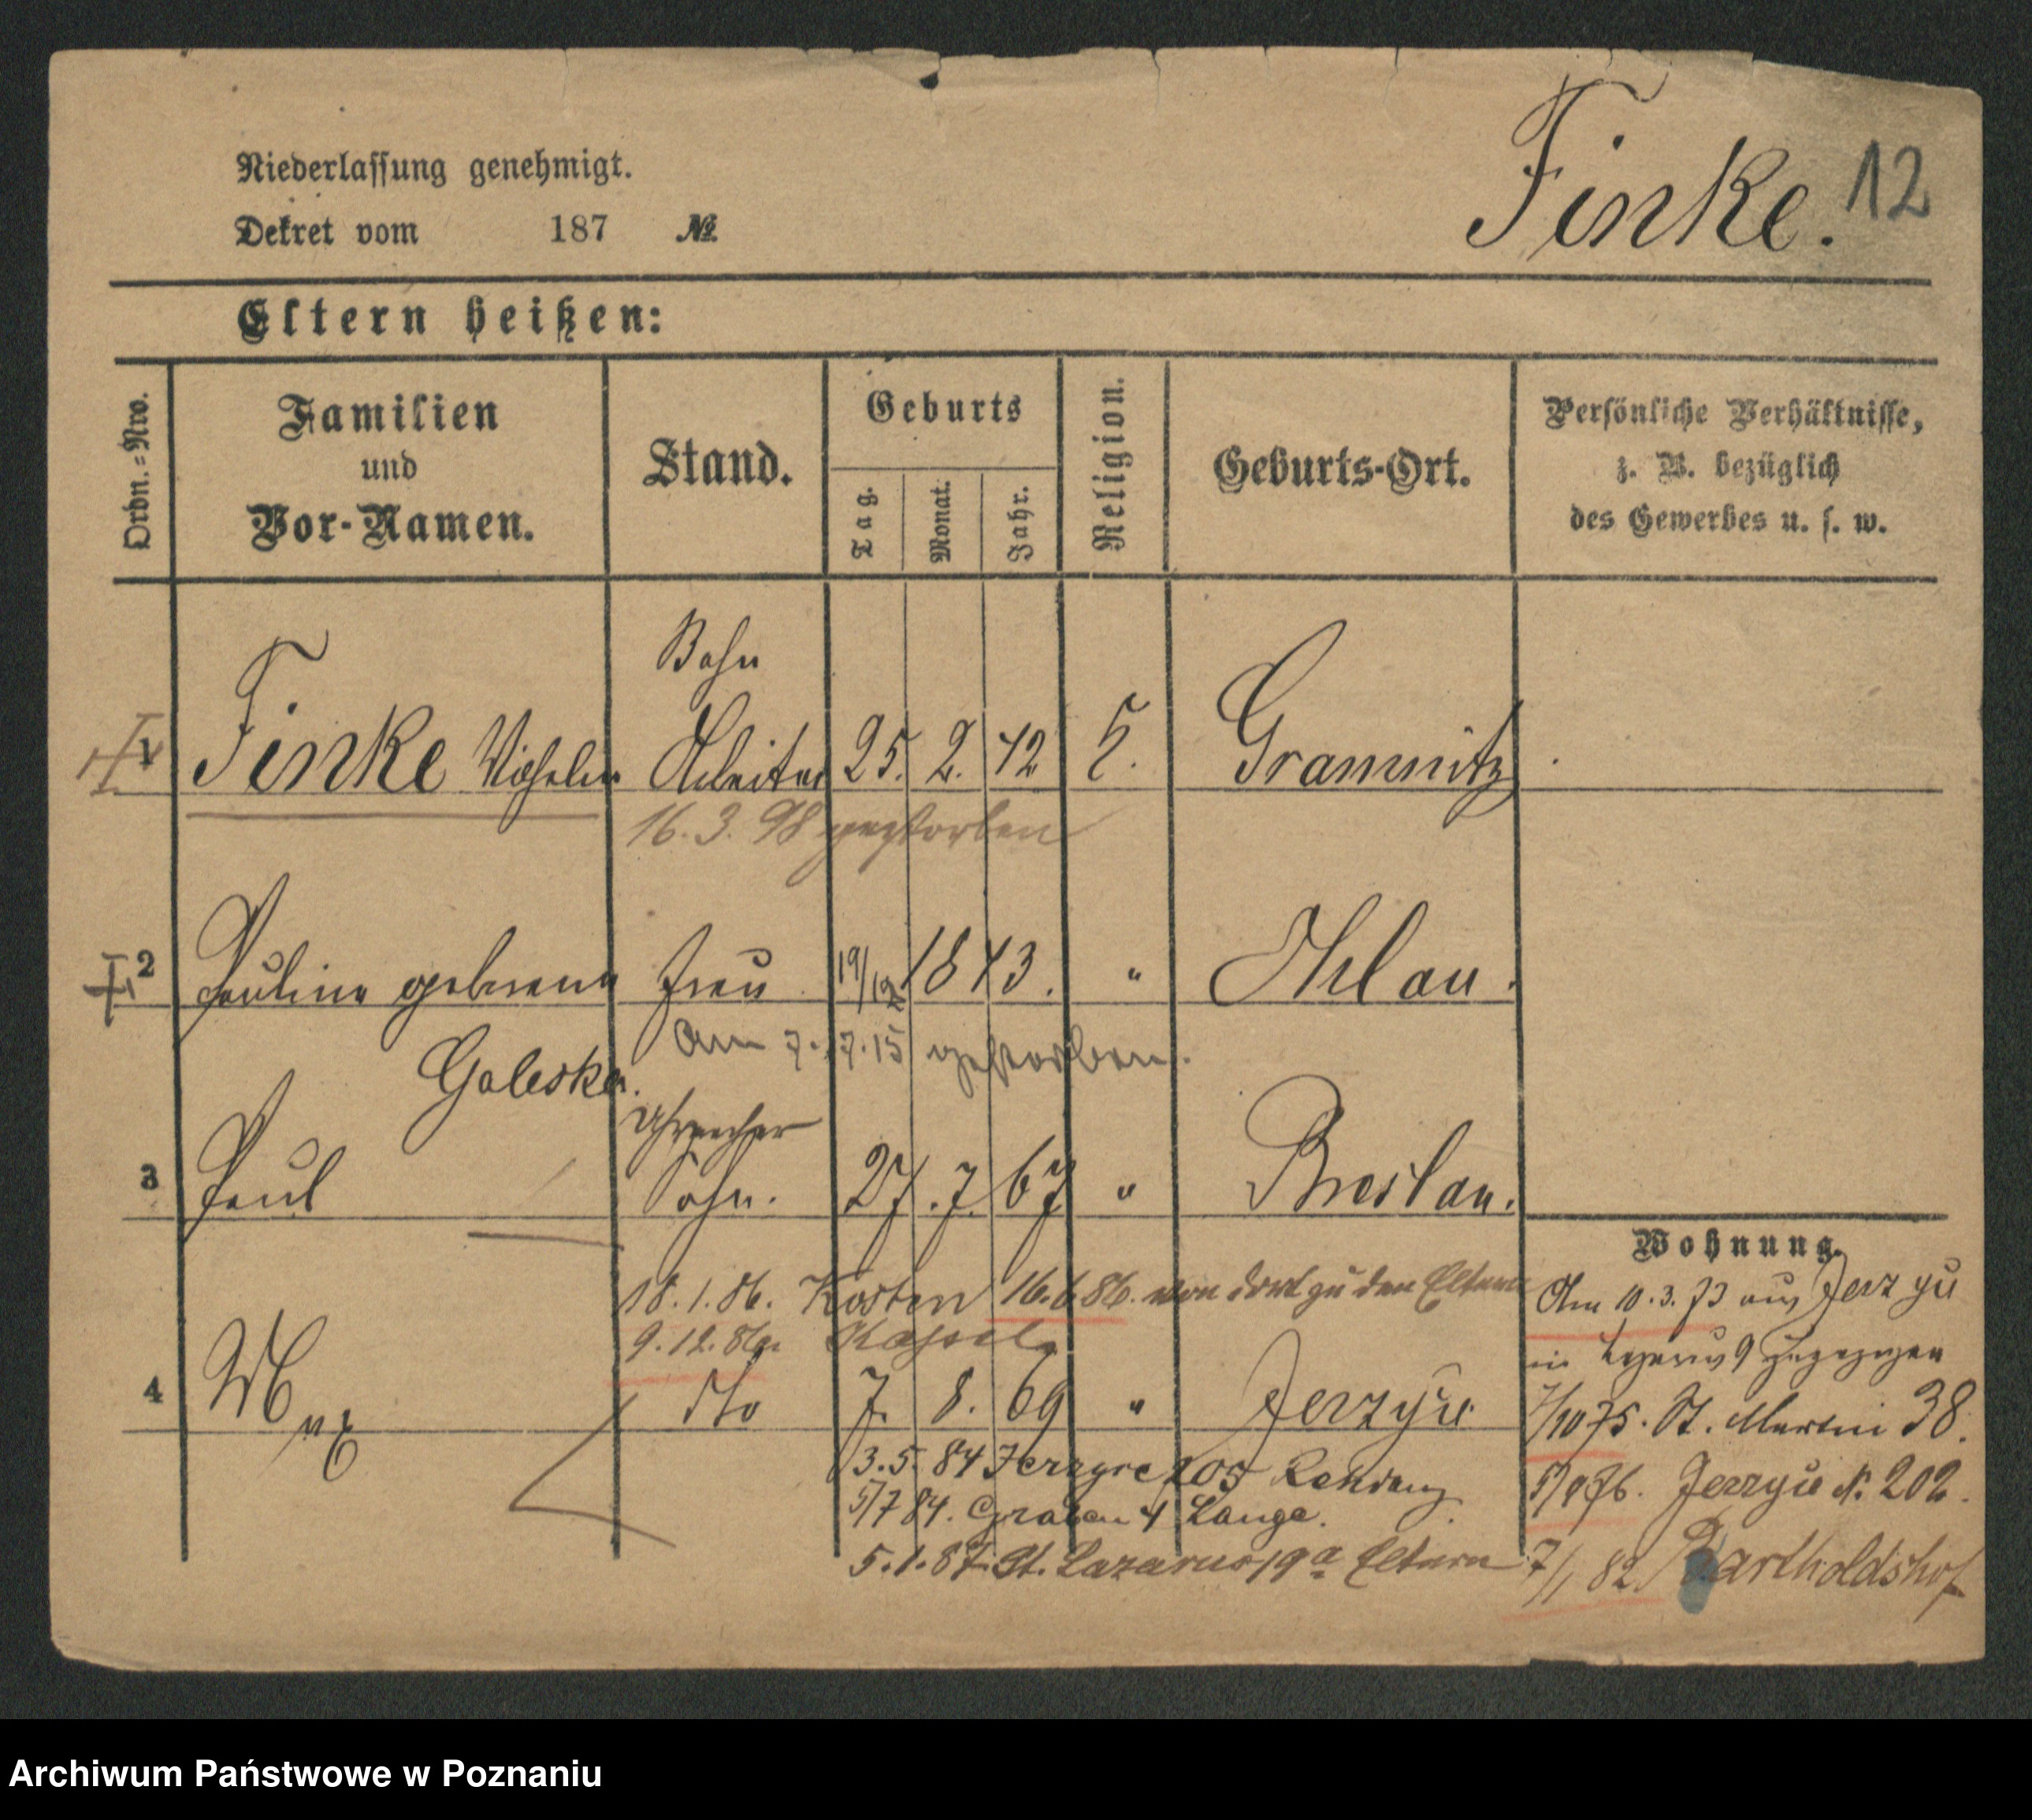 Finke. 12
Niederlassung genehmigt.
Dekret vom 187 №
Eltern heißen:
Ordn.=Nro.
Familien
und
Vor-Namen.
Stand.
Geburts
Tag.
Monat.
Jahr.
Religion.
Geburts-Ort.
Persönliche Verhältnisse,
z. B. bezüglich
des Gewerbes u. s. w.
Bahn
1 Finke Wilhelm Arbeiter 25. 2. 42 Gramnitz
16. 3. 98 gestorben
2 Pauline geborene Frau 19/12 1843. " Ohlau.
Galeska.
am 7. 7. 15 gestorben.
3 Paul Sohn. 27. 7. 67 " Breslau.
Wohnung.
18. 1. 86. Kosten 16. 6. 86. von dort zu den Eltern
9. 12. 86. Kassel
Am 10. 3. 73 aus Jerzyce
in Lazarus 9 zugezogen
4 Max dto 7. 8. 69 " Jerzyce
7/10 75. St. Martin 38.
3. 5. 84 Jerzyce 105
5/9 76. Jerzyce N. 202.
5/7 84. Graben 4 Lange.
5. 1. 87. St. Lazarus 19a Eltern
7/1 82. Bartholdshof
Archiwum Państwowe w Poznaniu